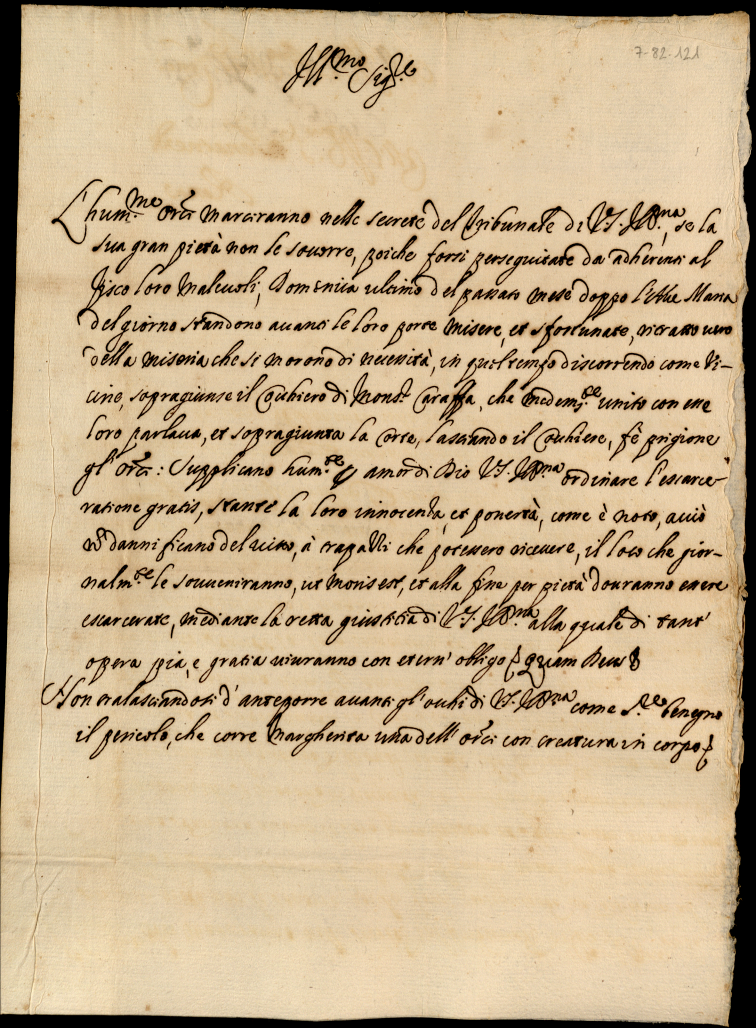 7-82-121
Ill.mo Sig.re
L'hum.me Or.ci marciranno nelle secrete del Tribunale di V.S. Ill.ma, se la
sua gran pietà non le socorre, poiche forsi perseguitate da adherenti al
fisco loro malevoli, Domenica ultimo del passato mese doppo l'Ave Maria
del giorno standono avanti le loro porte misere, et sfortunate, ritratto vero
della miseria che si morono di necessità, in quel tempo discorrendo come vi-
cine, sopragiunse il cochiero di Mons.r Caraffa, che medem.te unito con esse
loro parlava, et sopragiunta la corte, lasciando il cochiere, fè prigione
gl'Or.ci: Supplicano hum.te p amor di Dio V.S. Ill.ma ordinare l'escarce-
ratione gratis, stante la loro innocenza, et povertà, come è noto, acciò
nō dannificano del vitto, à trapassi che potessero ricevere, il loco che gior-
nalm.te le souveniranno, ut moris est, et alla fine per pietà douranno essere
escarcerate, mediante la retta giustitia di V.S. Ill.ma alla quale di tant'
opera pia, e gratia viuranno con etern' obligo Quam Deus
Non tralasciandosi d'anteporre avanti gl'occhi di V.S. Ill.ma come S.re benegno
il pericolo, che corre Margherita una dell' Or.ci con creatura in corpo